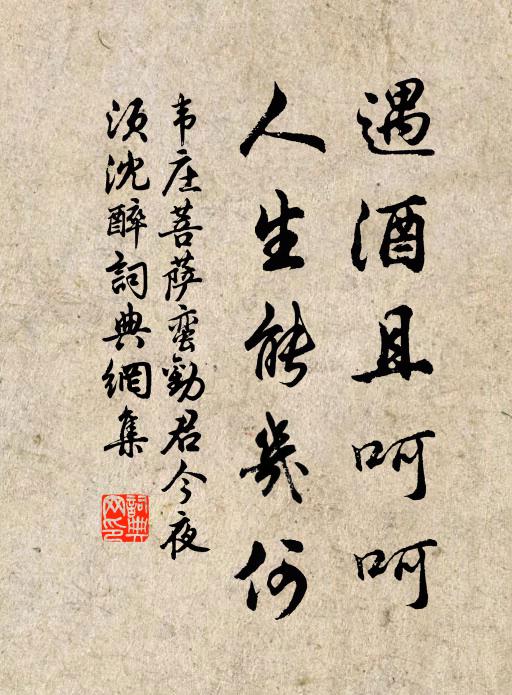 遇酒且呵呵
人生能幾何
韦庄菩萨蛮勸君今夜
须沈醉詞典網集
詞典
网印